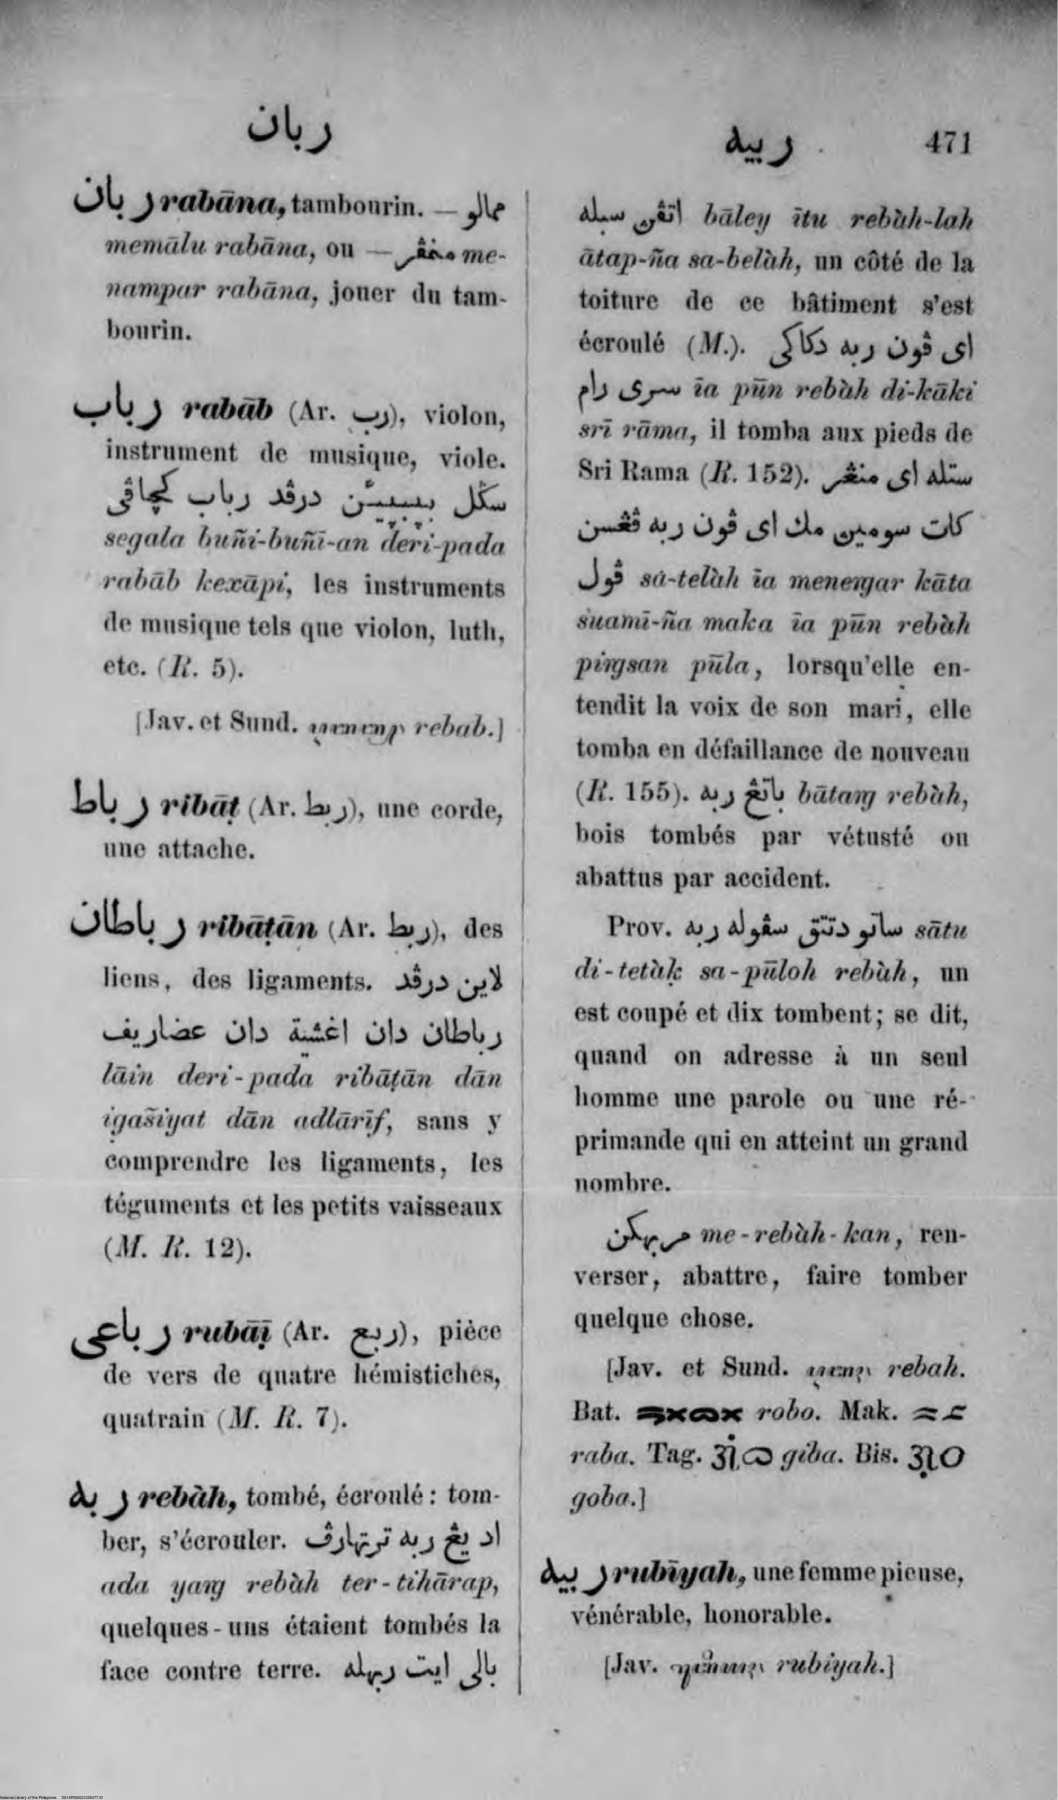 ربان
ربيه 471
ربان rabāna, tambourin. — ممالو
memālu rabāna, ou — منمڤر me-
nampar rabāna, jouer du tam-
bourin.
رباب rabāb (Ar. رب), violon,
instrument de musique, viole.
سڬل درڤد رباب كچاڤي
segala buñi-buñī-an deri-pada
rabāb kexāpi, les instruments
de musique tels que violon, luth,
etc. (R. 5).
[Jav. et Sund. rebab.]
رباط ribāṭ (Ar. ربط), une corde,
une attache.
رباطان ribāṭān (Ar. ربط), des
liens, des ligaments. لاين درڤد
رباطان دان اغشية دان عضاريف
lāin deri-pada ribāṭān dān
igašiyat dān adlārīf, sans y
comprendre les ligaments, les
téguments et les petits vaisseaux
(M. R. 12).
رباعى rubāị̄ (Ar. ربع), pièce
de vers de quatre hémistiches,
quatrain (M. R. 7).
ربه rebàh, tombé, écroulé: tom-
ber, s'écrouler. اد يڠ ربه ترتهارڤ
ada yaṅg rebàh ter-tihārap,
quelques-uns étaient tombés la
face contre terre. بالى ايت ربهله
اتڤڽ سبله bāley ītu rebàh-lah
ātap-ña sa-belàh, un côté de la
toiture de ce bâtiment s'est
écroulé (M.). اى ڤون ربه دكاكى
سرى رام īa pūn rebàh di-kāki
srī rāma, il tomba aux pieds de
Sri Rama (R. 152). ستله اى منڠر
كات سوميڽ مك اى ڤون ربه ڤڠسن
ڤول sa-telàh īa meneṅgar kāta
suamī-ña maka īa pūn rebàh
piṅgsan pūla, lorsqu'elle en-
tendit la voix de son mari, elle
tomba en défaillance de nouveau
(R. 155). باتڠ ربه bātaṅg rebàh,
bois tombés par vétusté ou
abattus par accident.
Prov. ساتو دتتق سڤوله ربه sātu
di-tetàḳ sa-pūloh rebàh, un
est coupé et dix tombent; se dit,
quand on adresse à un seul
homme une parole ou une ré-
primande qui en atteint un grand
nombre.
مربهكن me-rebàh-kan, ren-
verser, abattre, faire tomber
quelque chose.
[Jav. et Sund. rebah.
Bat. robo. Mak.
raba. Tag. giba. Bis.
goba.]
ربيه rubīyah, une femme pieuse,
vénérable, honorable.
[Jav. rubiyah.]